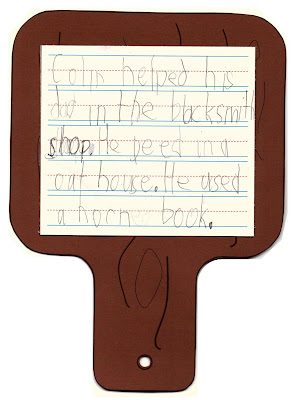 Colin helped his
dad in the blacksmith
shop. He peed in a
out house. He used
a horn book.